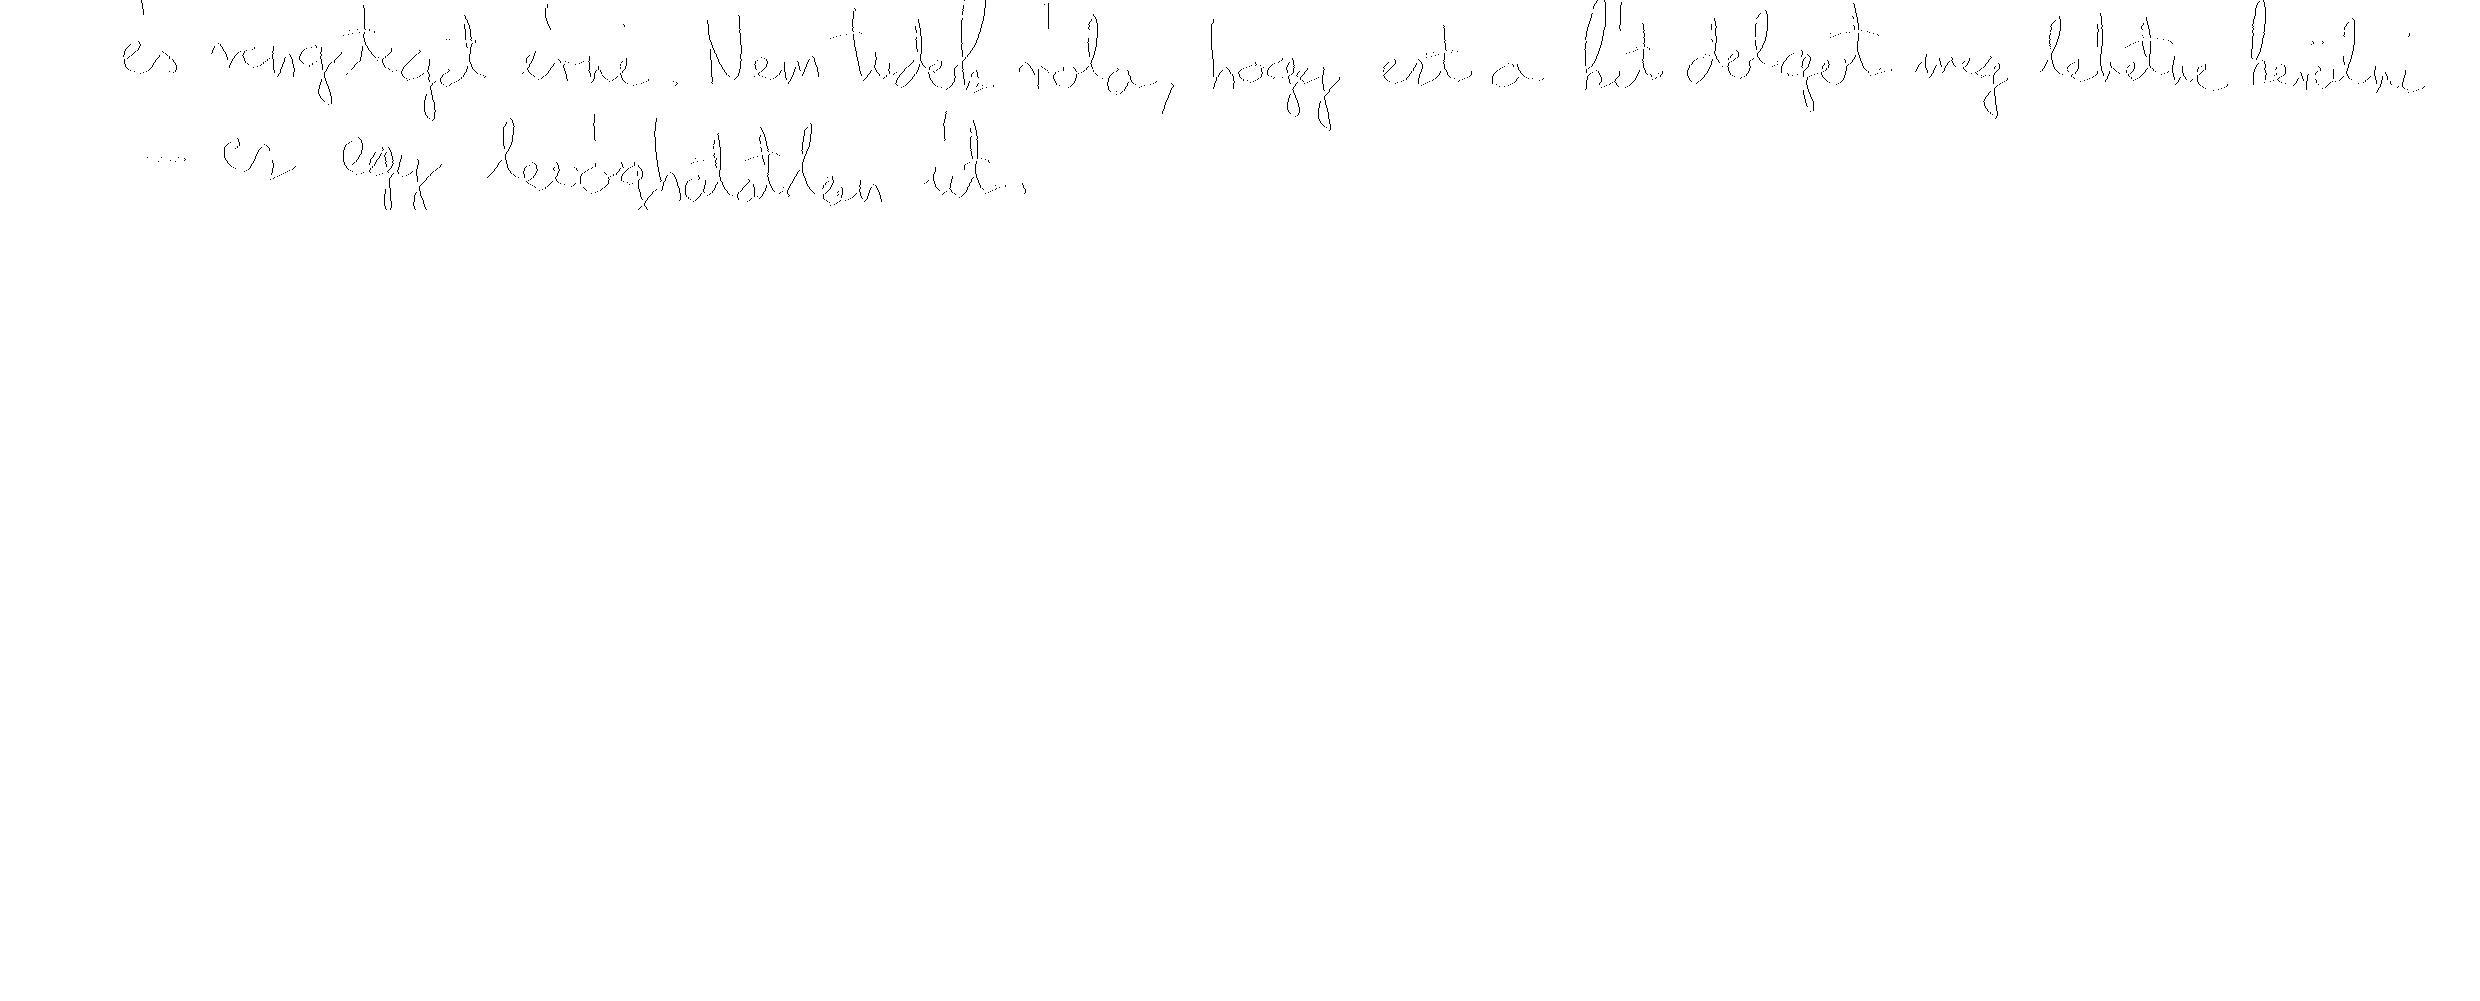 és rengeteget érni. Nem tudok róla, hogy ezt a két dolgot meg lehetne kerülni
– ez egy levághatatlan út.